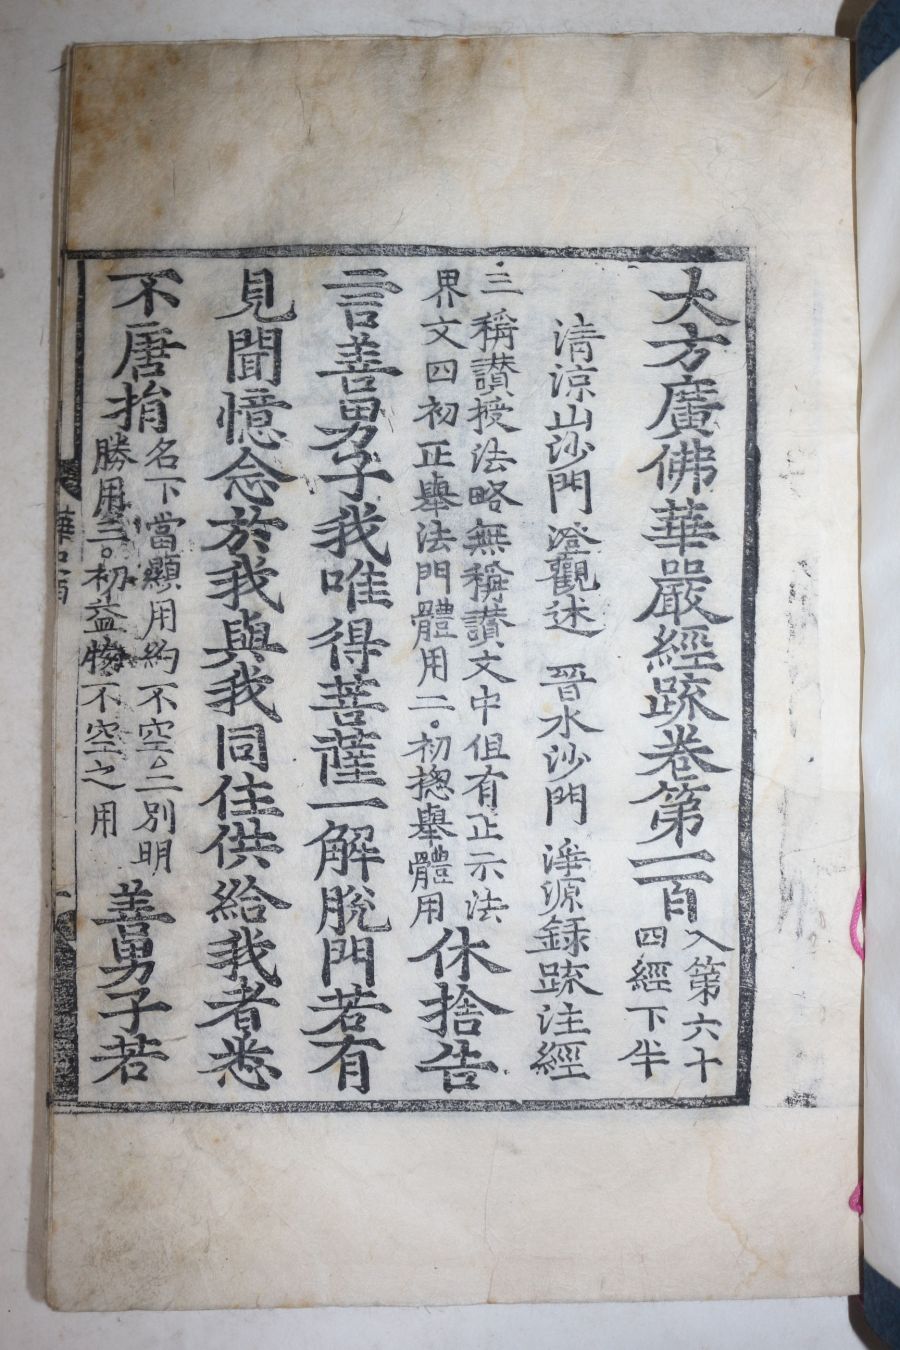 大方廣佛華嚴經疏卷第一百 入第六十四經下半
清涼山沙門澄觀述 晉水沙門淨源録疏注經
三稱讃授法略無稱讃文中但有正示法
界文四初正舉法門體用二初揔舉體用
休捨告
言善男子我唯得菩薩一解脫門若有
見聞憶念於我與我同住供給我者悉
不唐捐 名下當顯用約不空二別明
勝用三初益物不空之用 善男子若